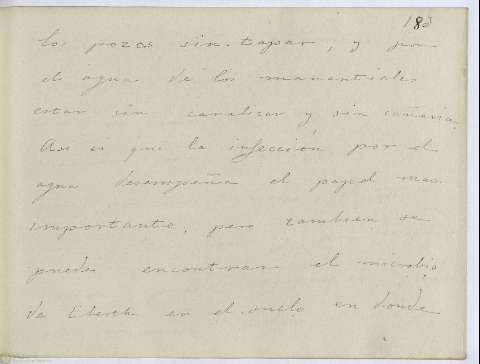 183
los pozos sin tapar, y por
el agua de los manantiales
estar sin canalizar y sin cañeria.
Asi es que la infección por el
agua desempeña el papel mas
importante, pero tambien se
puede encontrar el microbio
de Eberth en el suelo en donde